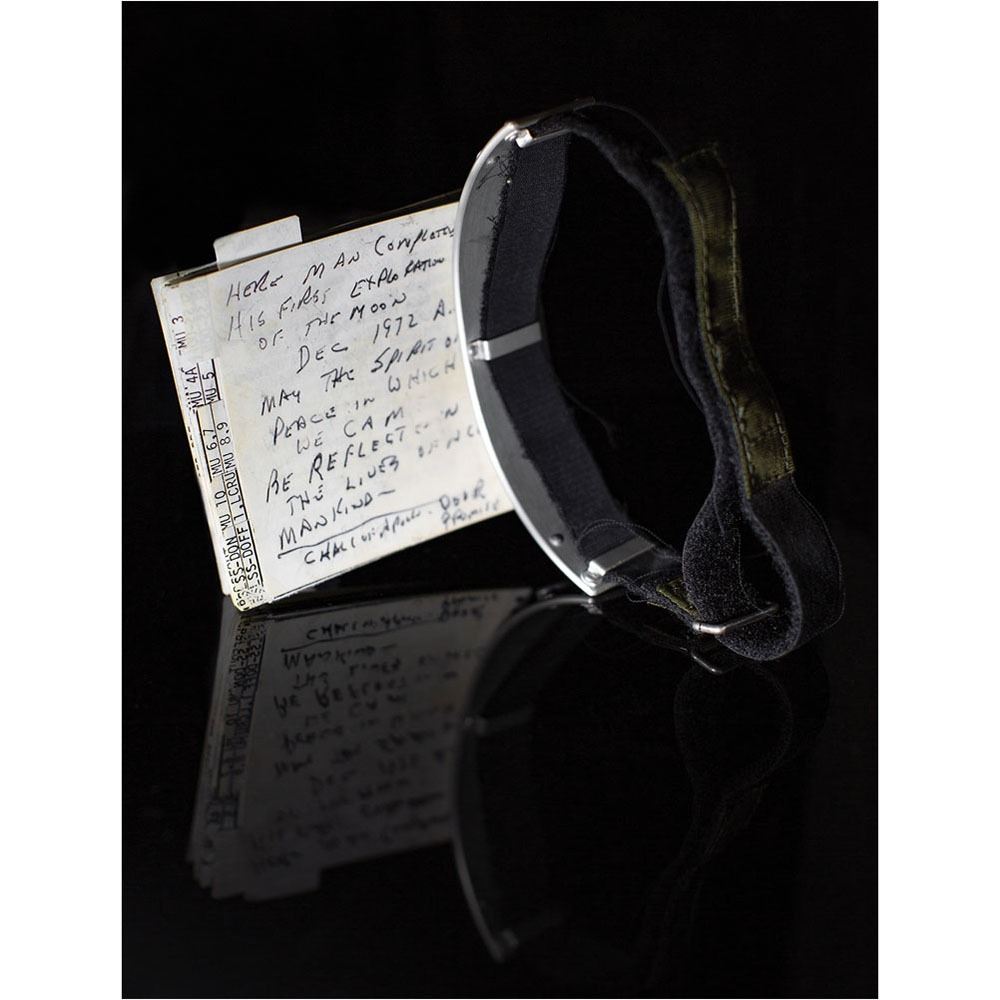 HERE MAN COMPLETED
HIS FIRST EXPLORATION
OF THE MOON
DEC 1972 A.
MAY THE SPIRIT OF
PEACE IN WHICH
WE CAM
BE REFLECT IN
THE LIVES OF ALL
MANKIND—
DOOR
PROMISE
MU 3
MU 4A
MU 5
MU 6,7
MU 8,9
MU 10
LCRU
SS-DON
SS-DOFF